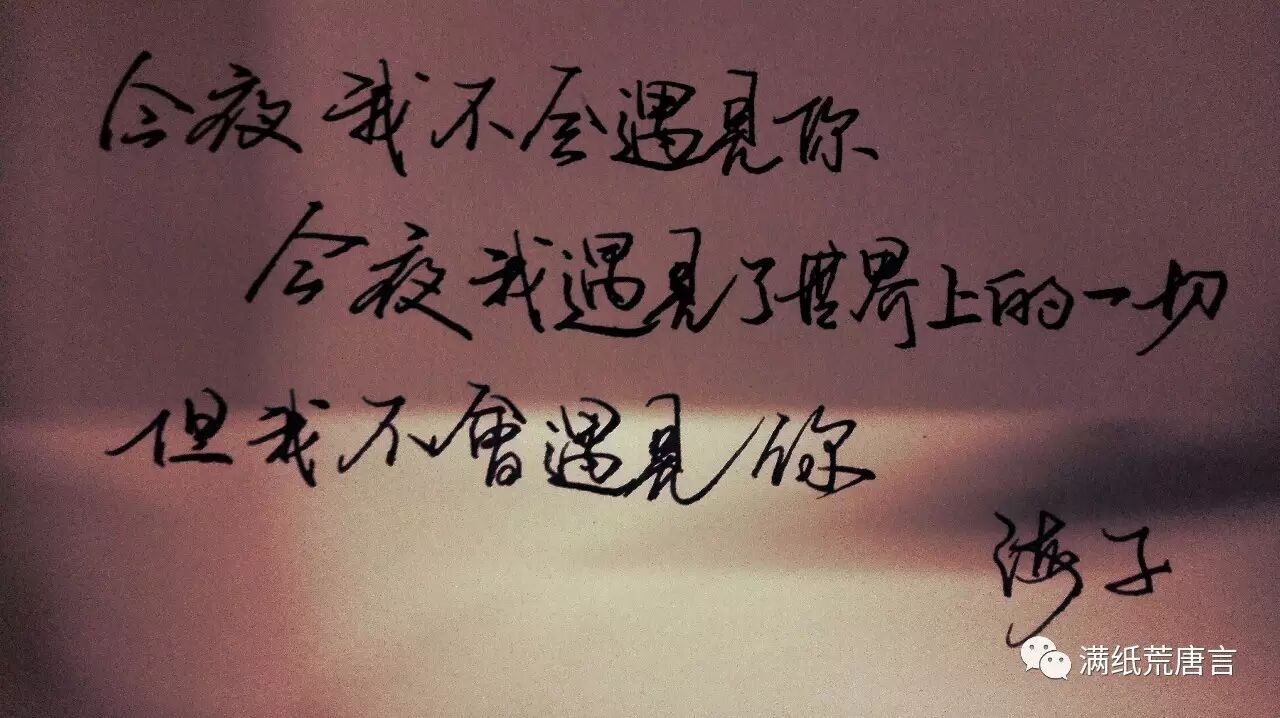 今夜我不会遇見你
今夜我遇見了世界上的一切
但我不會遇見你
海子
满纸荒唐言